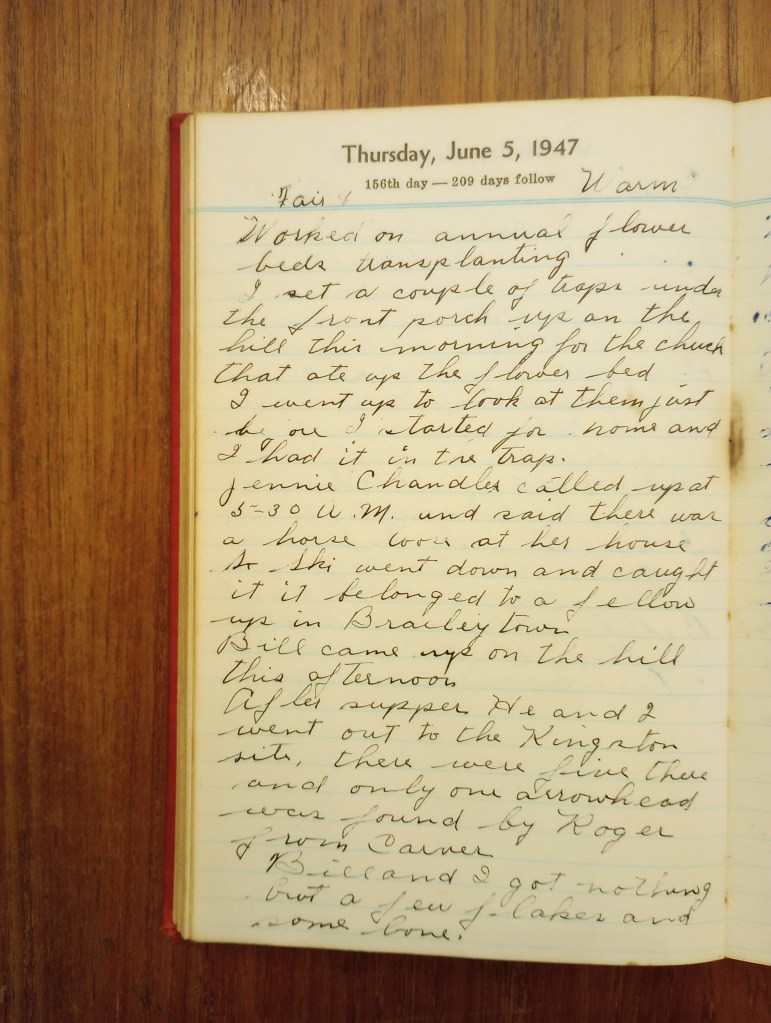 Thursday, June 5, 1947
156th day — 209 days follow
Fair & Warm
Worked on annual flower
beds transplanting
I set a couple of traps under
the front porch up on the
hill this morning for the chuck
that ate up the flower bed
I went up to look at them just
before I started for home and
I had it in the trap.
Jennie Chandler called up at
5-30 A.M. and said there was
a horse loose at her house
so Ski went down and caught
it it belonged to a fellow
up in Braileytown
Bill came up on the hill
this afternoon
After supper He and I
went out to the Kingston
site, there were five there
and only one arrowhead
was found by Roger
from Carver
Bill and I got nothing
but a few flakes and
some bone.